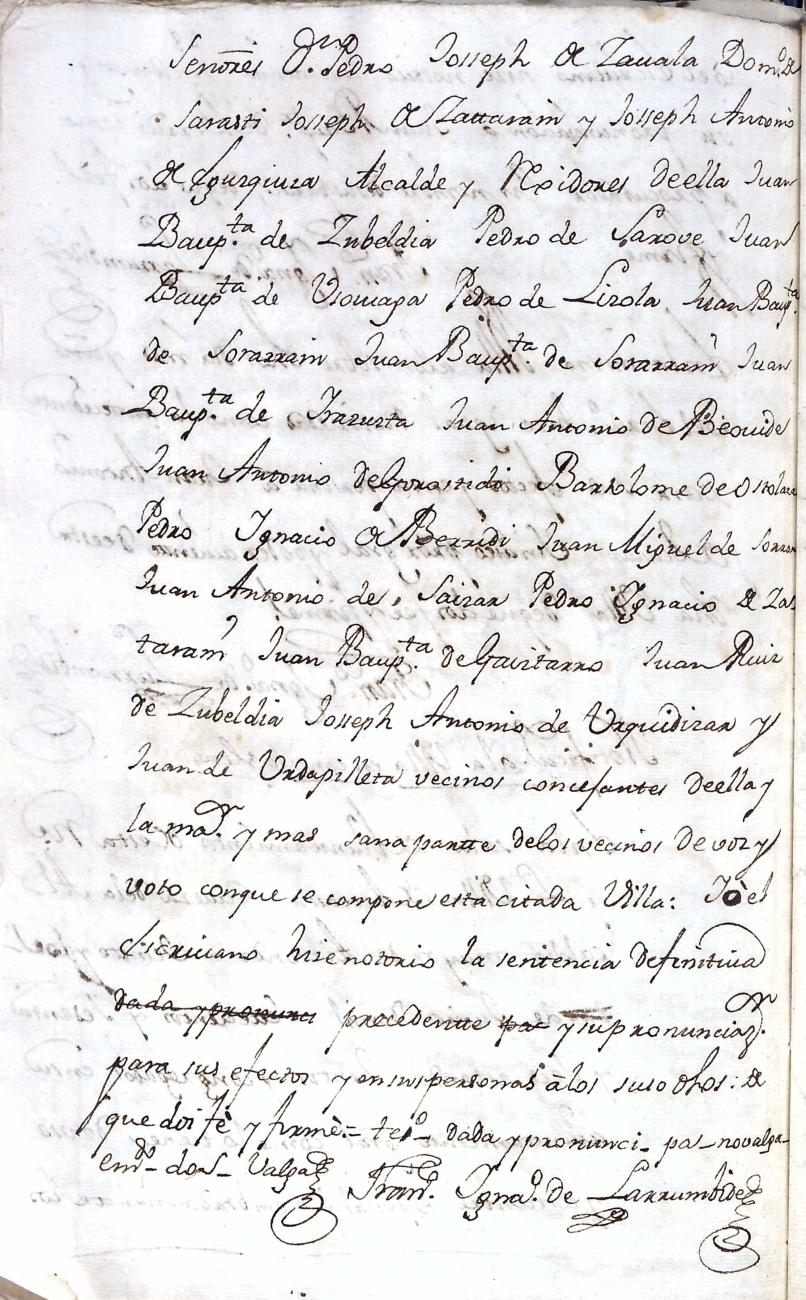 Señores Dn. Pedro Joseph de Zauala Domo. de
Sarasti Joseph de Zattarain y Joseph Antonio
de Egurguiza Alcalde y Rexidores deella Juan
Baupta. de Zubeldia Pedro de Sarove Juan
Baupta. de Usouiaga Pedro de Lizola Juan Baupta.
de Sorarrain Juan Baupta. de Sorarrain Juan
Baupta. de Irazusta Juan Antonio de Beouide
Juan Antonio de Gorostidi Bartolome de Ostolaza
Pedro Ignacio de Berridi Juan Miguel de
Juan Antonio de Saizar Pedro Ignacio de Zat
tarain Juan Baupta. de Gavitarro Juan Ruiz
de Zubeldia Joseph Antonio de Urquidizar y
Juan de Urdapilleta vecinos concejantes deella y
la mar. y mas sana partte delos vecinos de voz y
voto conque se compone esta citada Villa: Yo el
Escriuano hize notorio la sentencia definitiua
dada y pronunci precedentte pa y su pronunciaon.
para sus efectos y en sus personas â los suso dhos: de
que doi fè y firmè:= tesdo- dada y pronunci- pa- no valga-
emdo- dos- Valga
Frano. Ignao. de Larrumbide